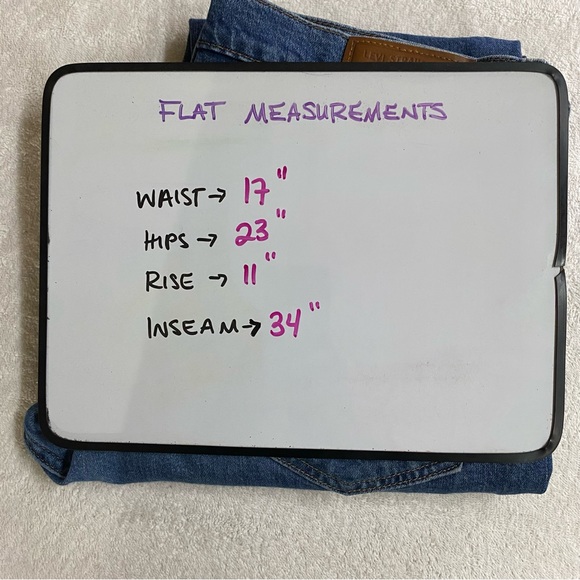 FLAT MEASUREMENTS
WAIST → 17"
HIPS → 23"
RISE → 11"
INSEAM → 34"